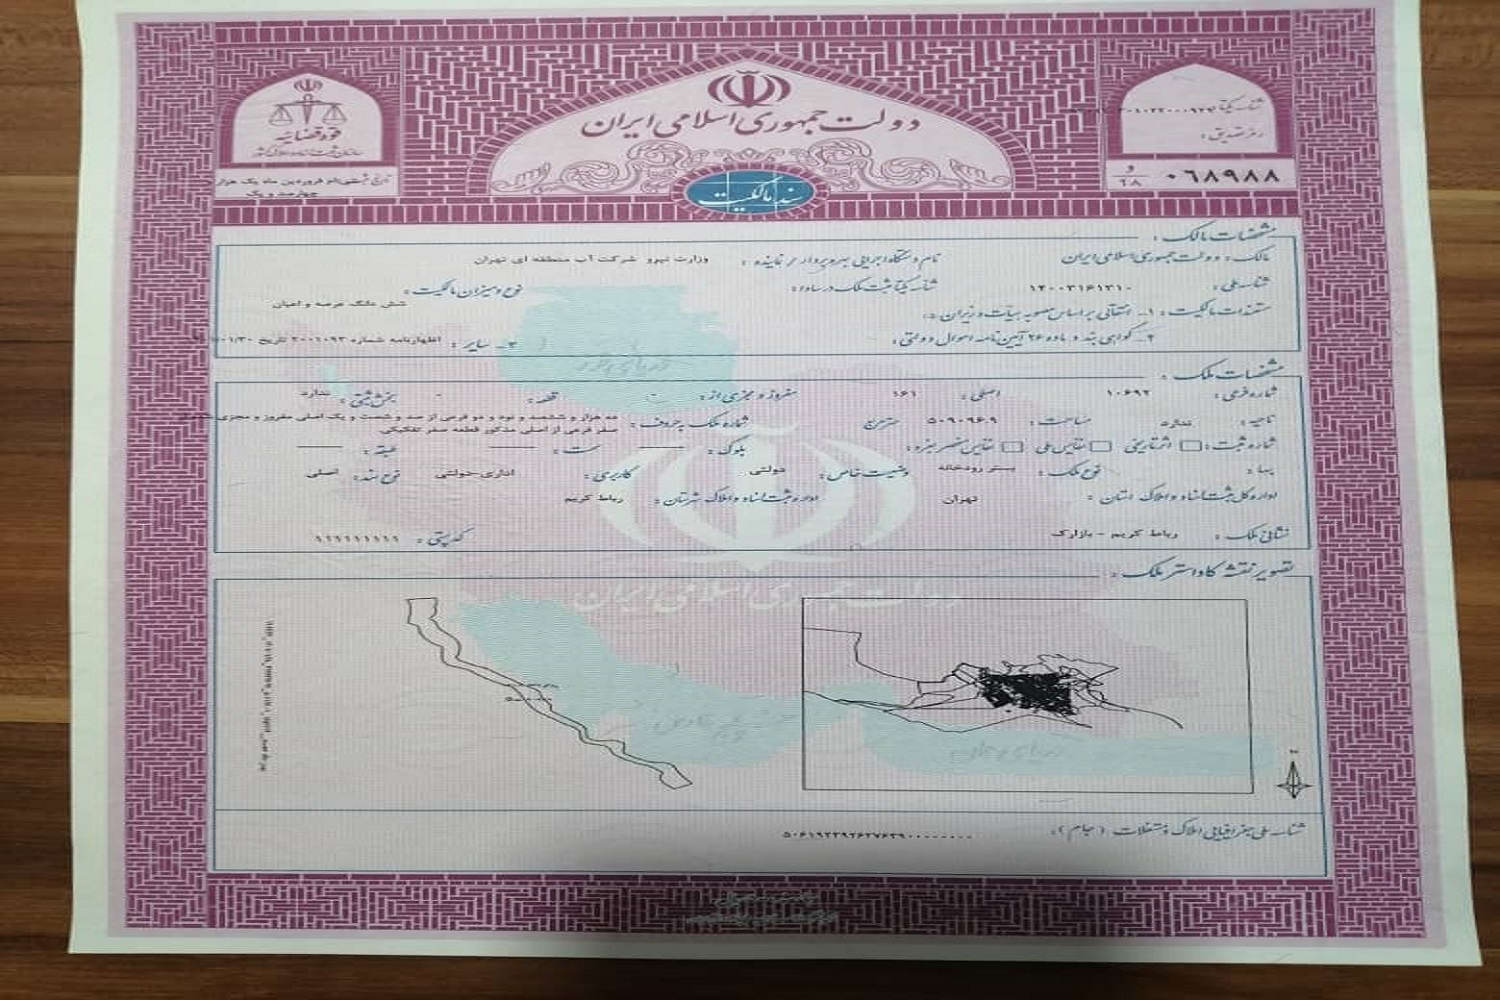 دولت جمهوری اسلامی ایران
قوه قضائیه
سازمان ثبت اسناد و املاک کشور
شناسه یکتا:
رمز تصدیق:
سند مالکیت
و ۲۸ ۰۶۸۹۸۸
مشخصات مالک:
مالک: دولت جمهوری اسلامی ایران نام دستگاه اجرایی بهره بردار / نماینده: وزارت نیرو شرکت آب منطقه ای تهران
شناسه ملی: ۱۴۰۰۳۱۶۱۳۱۰ شناسه یکتا ثبت ملک در سادا: نوع و میزان مالکیت: شش دانگ عرصه و اعیان
مستندات مالکیت: ۱- انتقالی بر اساس مصوبه هیات وزیران
۲- گواهی بند و ماده ۲۶ آیین نامه اموال دولتی: ۳- سایر: اظهارنامه شماره ۲۰۰۱۰۹۳ تاریخ
مشخصات ملک:
شماره فرعی: ۱۰۶۹۲ اصلی: ۱۶۱ مفروز و مجزی از: - قطعه: - بخش ثبتی: ندارد
ناحیه: ندارد مساحت: ۵۰۹۰۹۶.۹ مترمربع شماره ملک به حروف: ده هزار و ششصد و نود و دو فرعی از صد و شصت و یک اصلی مفروز و مجزی
صفر فرعی از اصلی مذکور قطعه صفر تفکیکی
شماره ثبت: اثر تاریخی نفایس ملی نفایس منحصر بفرد: بلوک: سمت: طبقه:
بها: نوع ملک: بستر رودخانه وضعیت خاص: دولتی کاربری: اداری-دولتی نوع سند: اصلی
اداره کل ثبت اسناد و املاک استان: تهران اداره ثبت اسناد و املاک شهرستان: رباط کریم
نشانی ملک: رباط کریم - بازارک کد پستی: ۱۱۱۱۱۱۱۱۱۱
تصویر نقشه کاداستر ملک:
دولت جمهوری اسلامی ایران
شناسه ملی جغرافیایی املاک و مستغلات (جام):